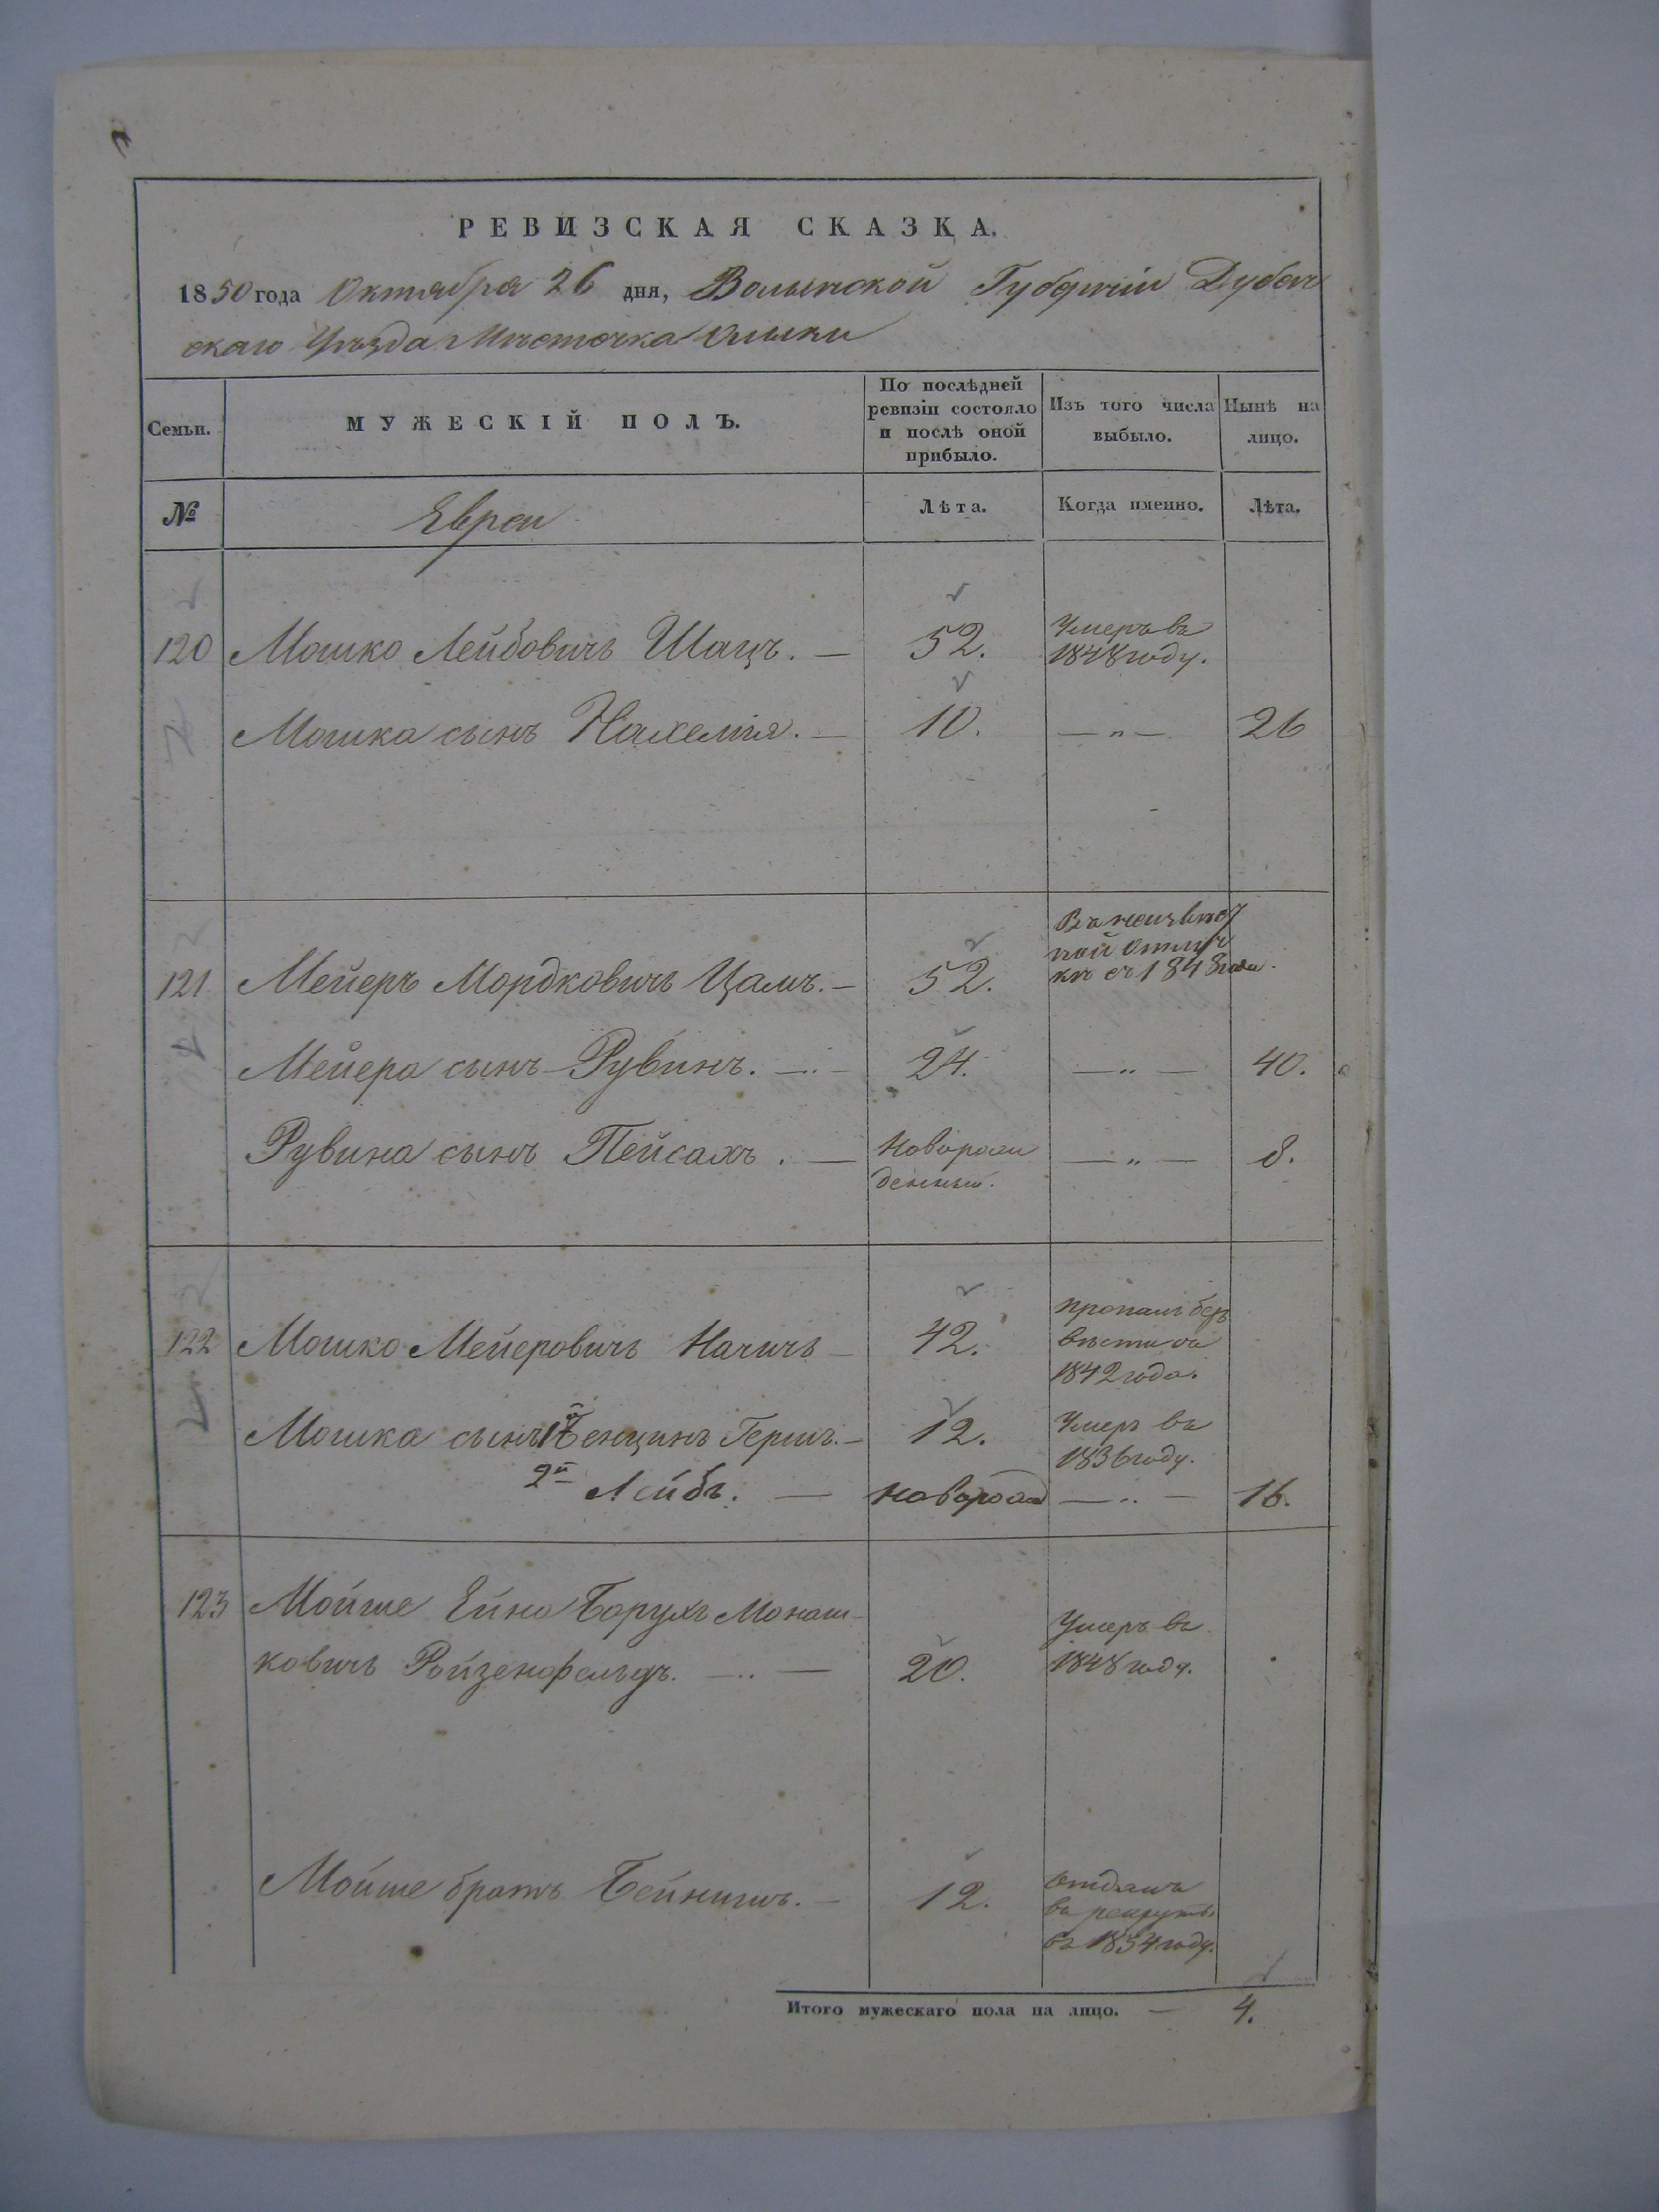 РЕВИЗСКАЯ СКАЗКА.
1850 года Октября 26 дня, Волынской Губерніи Дубен
скаго Уѣзда Мѣстечка Олыки
Семьи. МУЖЕСКІЙ ПОЛЪ. По послѣдней ревизіи состояло и послѣ оной прибыло. Изъ того числа выбыло. Нынѣ на лицо.
№ Евреи Лѣта. Когда именно. Лѣта.
120 Мошко Лейбовичъ Шацъ. — 52. Умеръ въ
1848 году.
Мошка сынъ Нахемія. — 10. — „ — 26
121 Мейеръ Мордковичъ Цамъ. — 52. Въ неизвѣст
ной отлуч
кѣ съ 1848 года.
Мейера сынъ Рувинъ. — 24. — „ — 40.
Рувина сынъ Пейсахъ. — Новорож
денный. — „ — 8.
122 Мошко Мейеровичъ Начичъ — 42. пропалъ безъ
вѣсти съ
1842 года.
Мошка сынъ 1й Бенцинъ Гершъ. — 12. Умеръ въ
1836 году.
2й Лейбъ. — новорожд — „ — 16.
123 Мойше Ейно Борухъ Монаш-
ковичъ Ройзенфельдъ. — 20. Умеръ въ
1848 году.
Мойше братъ Бейнишъ. — 12. отданъ
въ рекруты
въ 1854 году.
Итого мужескаго пола на лицо. — 4.